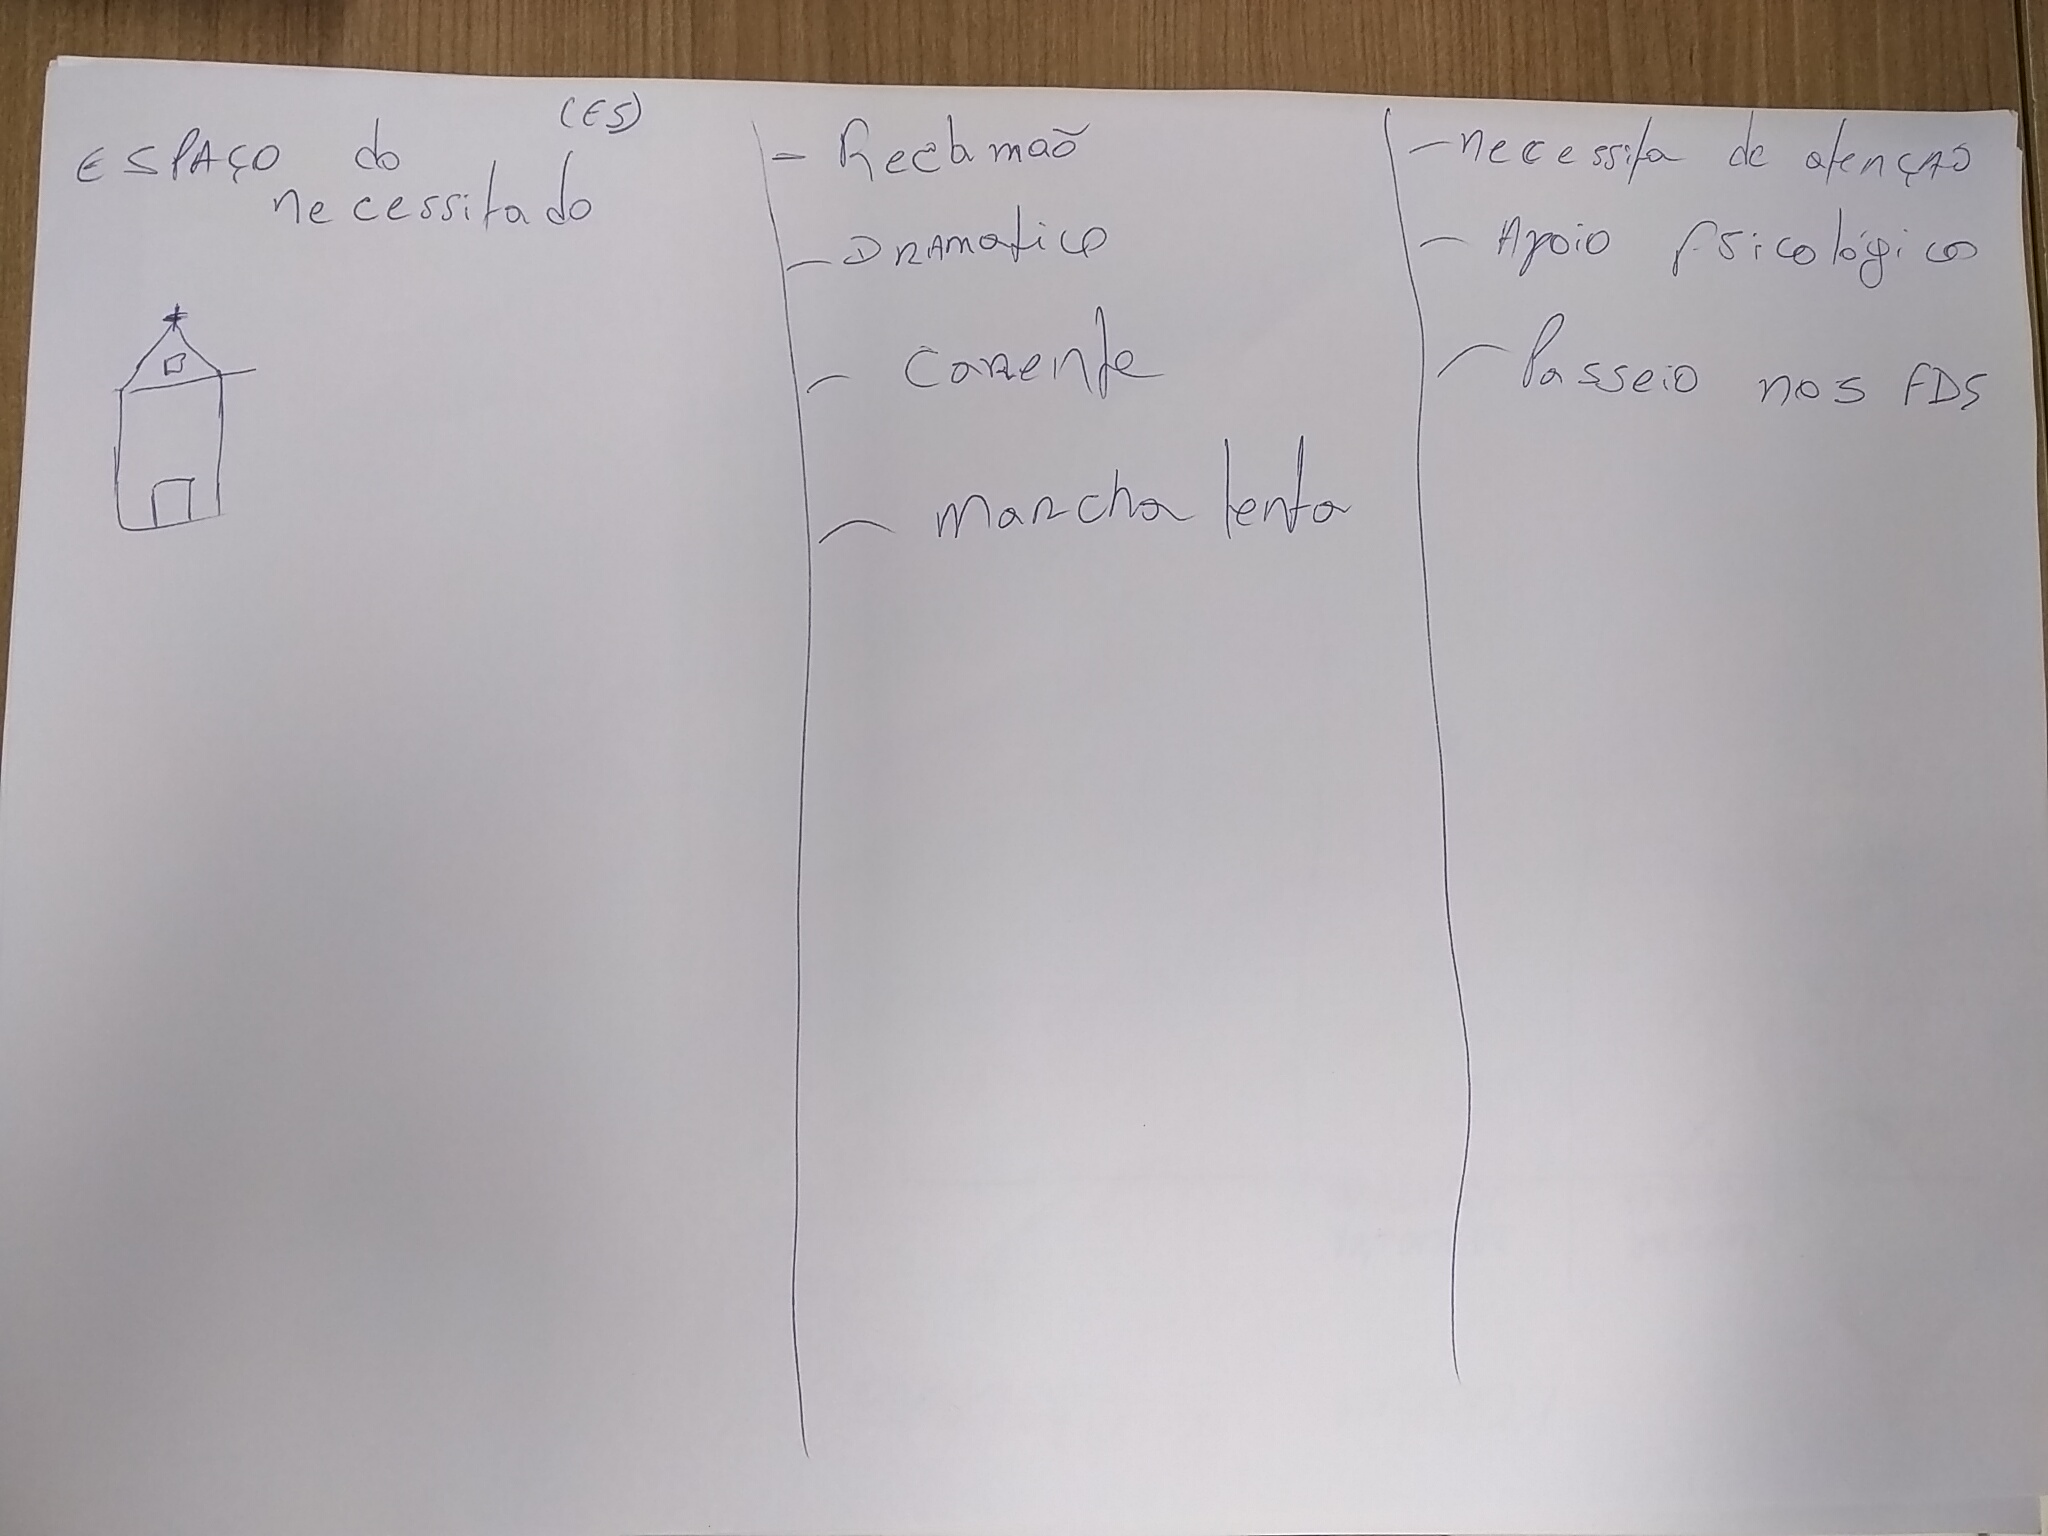 (ES)
ESPAÇO do
necessitado
- Reclamão
- DRAMatico
- CaRente
- maRcha lenta
- necessita de atenÇÃO
- Apoio Psicológico
- Passeio nos FDS